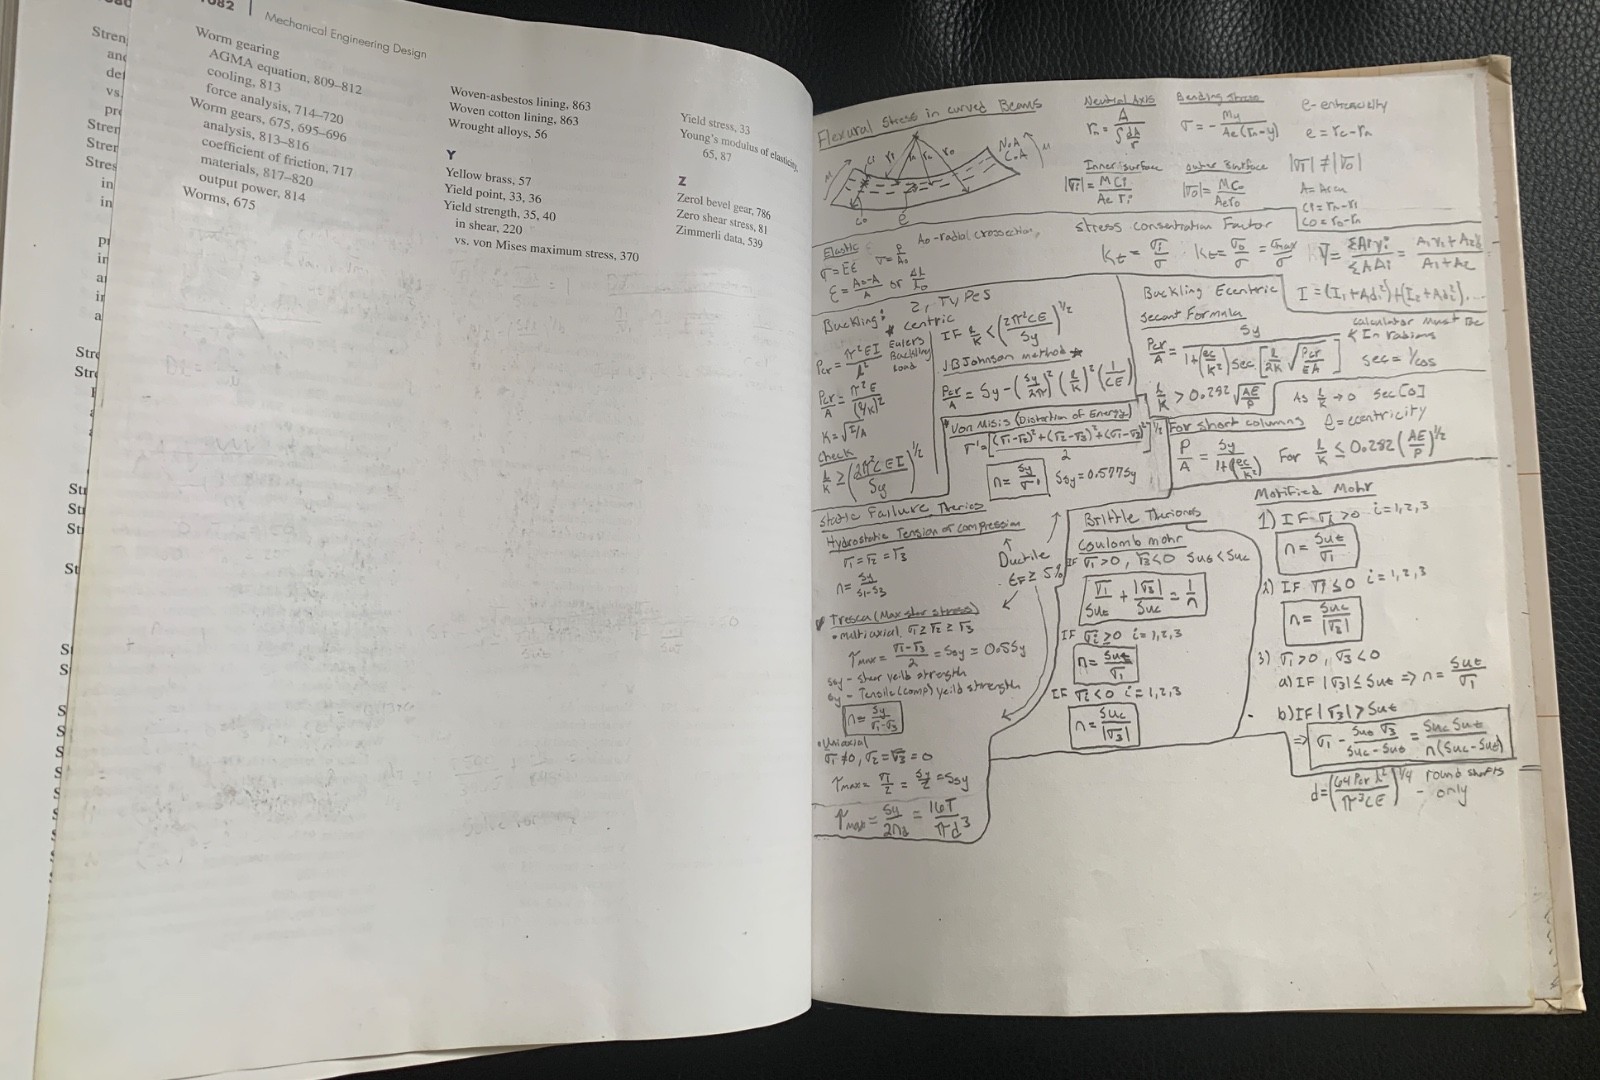 1082 | Mechanical Engineering Design
Worm gearing
AGMA equation, 809–812
cooling, 813
force analysis, 714–720
Worm gears, 675, 695–696
analysis, 813–816
coefficient of friction, 717
materials, 817–820
output power, 814
Worms, 675
Woven-asbestos lining, 863
Woven cotton lining, 863
Wrought alloys, 56
Y
Yellow brass, 57
Yield point, 33, 36
Yield strength, 35, 40
in shear, 220
vs. von Mises maximum stress, 370
Yield stress, 33
Young's modulus of elasticity,
65, 87
Z
Zerol bevel gear, 786
Zero shear stress, 81
Zimmerli data, 539
Flexural Stress in curved Beams
Neutral Axis
rn = A / ∫ dA/r
Bending Stress
σ = - My / Ae(rn-y)
e-entracicity
e = rc-rn
N.A
C.A
Inner surface
|σi| = MCi / Ae ri
outer surface
|σo| = MCo / Aero
|σi| ≠ |σo|
A = Area
Ci = rn-ri
Co = ro-rn
Elastic
σ = Eε
σ = P/Ao
Ao-radial crossection,
ε = Ao-A / A or ΔL / Lo
Stress consentration Factor
Kt = σi/σ Kt = σo/σ = σmax/σ
ȳ = ΣAiyi / ΣAi = A1y1 + A2y2 / A1+A2
I = (I1+Ad1²)+(I2+Ad2²)....
Buckling: 2, TYPES
* centric
Pcr = π²EI / l²
Eulers
Buckling
Load
Pcr/A = π²E / (l/k)²
K = √I/A
Check
l/k ≥ (2π²CEI / Sy)^1/2
IF l/k < (2π²CE / Sy)^1/2
JB Johnson method *
Pcr/A = Sy - (Sy/2π)² (l/k)² (1/CE)
Buckling Ecentric
Secant Formula
Pcr/A = Sy / 1+(ec/k²)Sec[l/2k √Pcr/EA]
calculator must be
In radians
sec = 1/cos
l/k > 0.282 √AE/P
As l/k → 0 Sec[0]
* Von Misis (Distortion of Energy)
σ' = [(σ1-σ2)²+(σ2-σ3)²+(σ1-σ3)² / 2]^1/2
n = Sy/σ'
Ssy = 0.577Sy
For short columns
e = eccentricity
P/A = Sy / 1+(ec/k²)
For l/k ≤ 0.282 (AE/P)^1/2
Static Failure Therios
Hydrostatic Tension or compression
σ1 = σ2 = σ3
n = Sy / S1-S3
Ductile
εF ≥ 5%
Tresca (Max shr stress)
• multiaxial σ1 ≥ σ2 ≥ σ3
τmax = σ1-σ3 / 2 = Ssy = 0.5Sy
Ssy - shear yeild strength
Sy - Tensile (comp) yeild strength
n = Sy / σ1-σ3
• Uniaxial
σ1 ≠ 0, σ2 = σ3 = 0
τmax = σ1/2 = Sy/2 = Ssy
τmax = Sy/2nd = 16T / πd³
Brittle Theriones
Coulomb mohr
IF σ1>0, σ3<0 Sut < Suc
σ1/Sut + |σ3|/Suc = 1/n
IF σi ≥0 i = 1,2,3
n = Sut/σ1
IF σi <0 i = 1,2,3
n = Suc/|σ3|
Motified Mohr
1) IF σi >0 i = 1,2,3
n = Sut/σ1
2) IF σi ≤0 i = 1,2,3
n = Suc/|σ3|
3) σ1 >0, σ3 <0
a) IF |σ3| ≤ Sut => n = Sut/σ1
b) IF |σ3| > Sut
=> σ1 - Sut σ3 / Suc-Sut = Suc Sut / n(Suc-Sut)
d = (64 Pcr l² / π³CE)^1/4 - round shafts
only